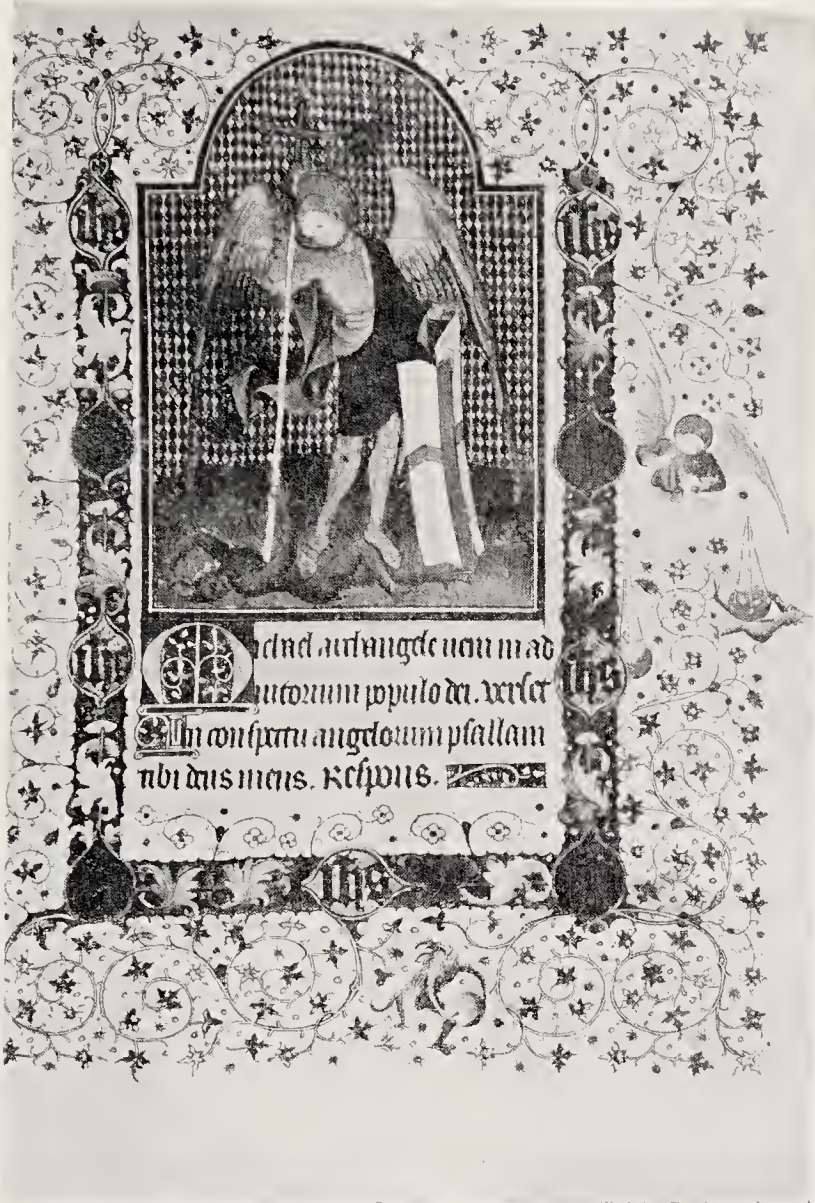 ihs ihs
Michael archangele ueni in ad
iutorium populo dei. verset
ihs ihs
In conspectu angelorum psallam
tibi deus meus. Respons.
ihs